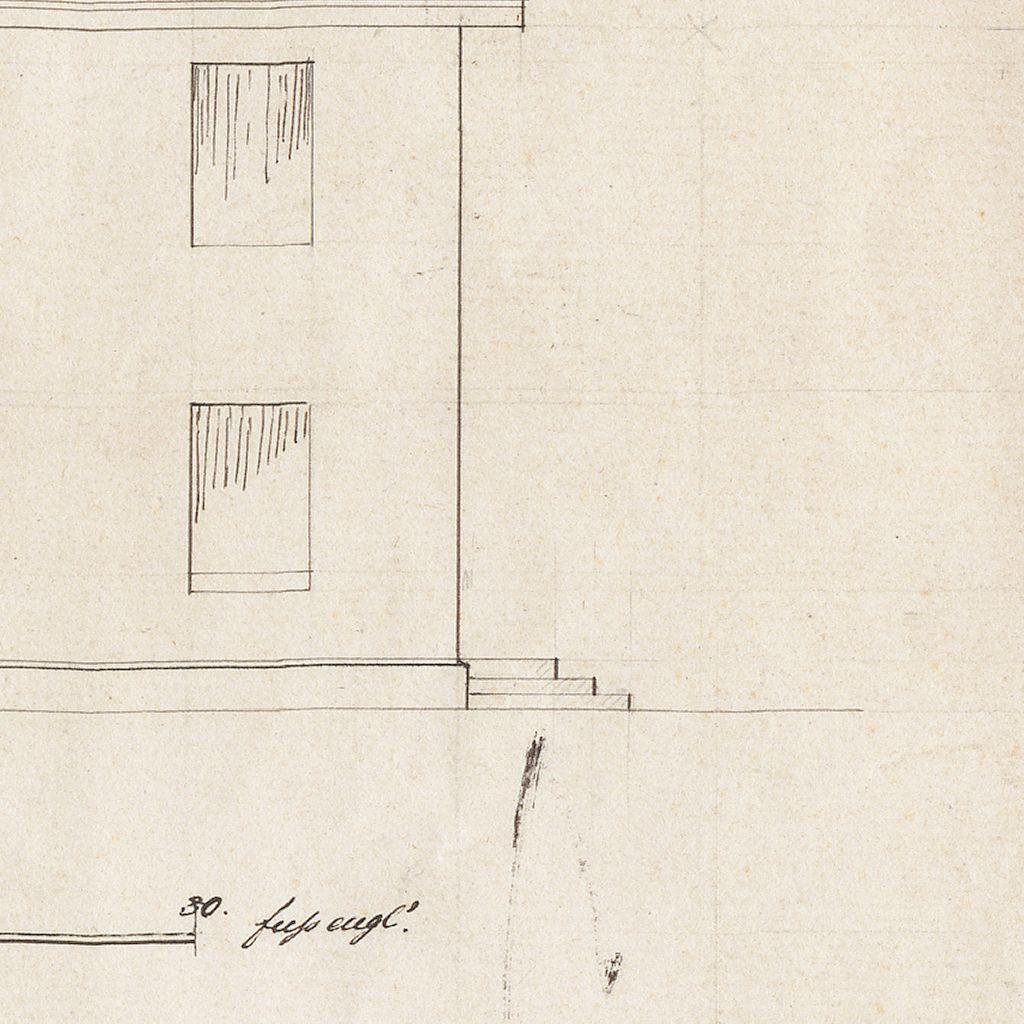 30. fuſs engl: